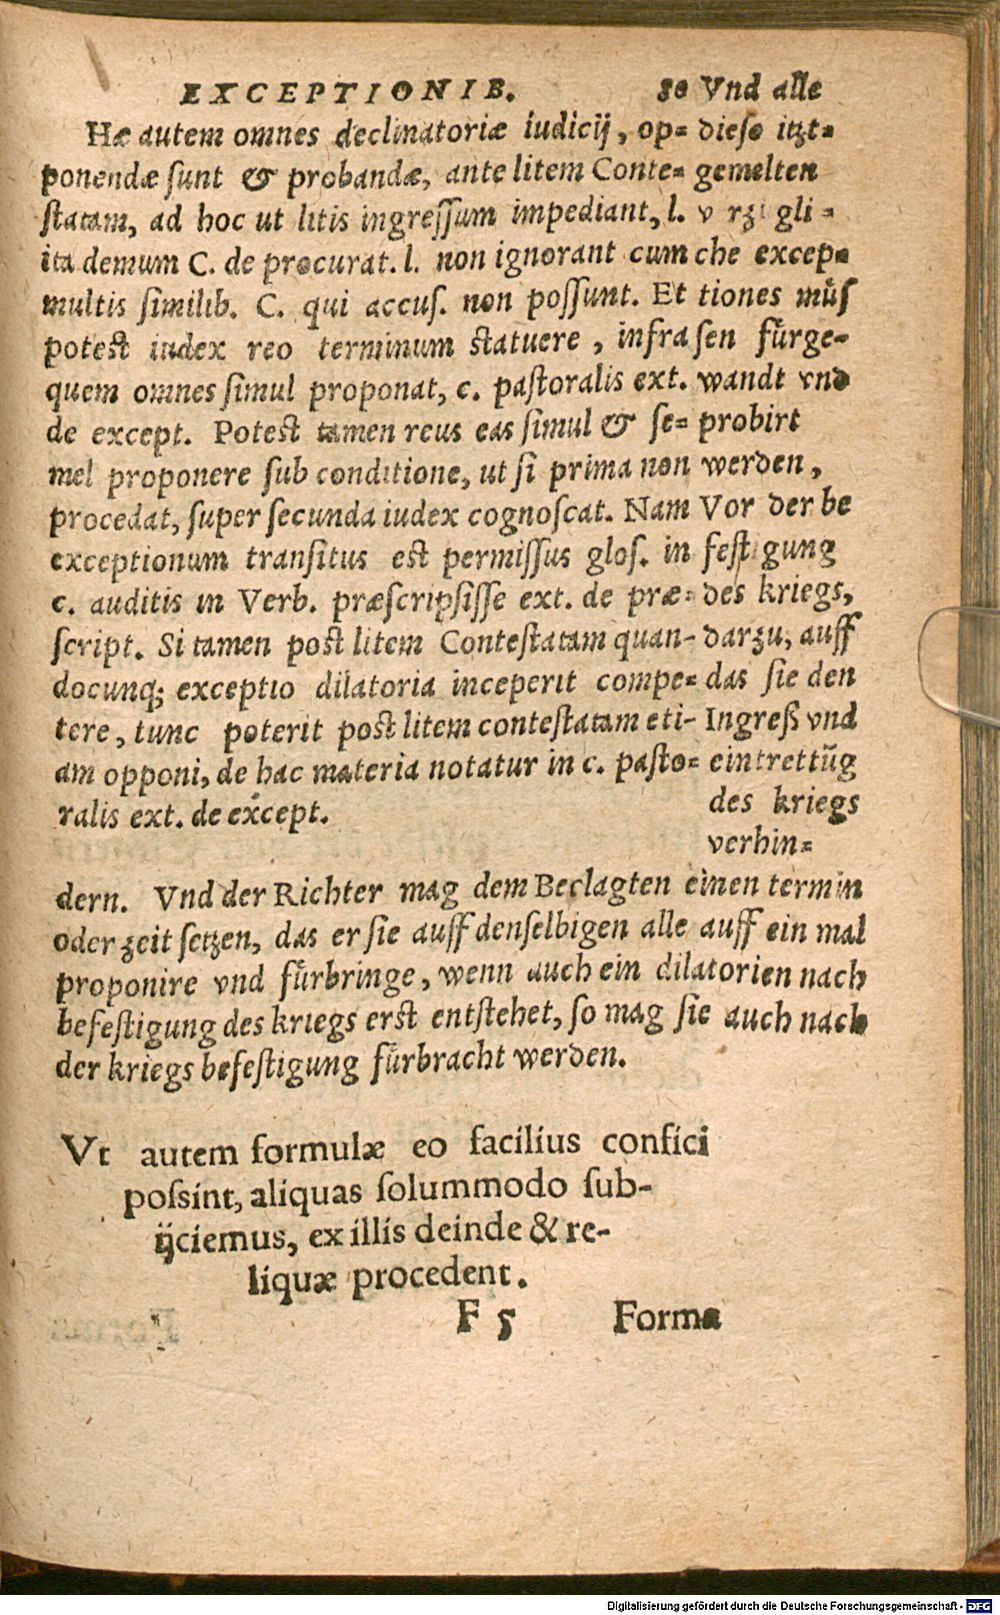 EXCEPTIONIB. 80
Hæ autem omnes declinatoriæ iudicij, op-
ponendæ sunt & probandæ, ante litem Conte-
statam, ad hoc ut litis ingressum impediant, l.
ita demum C. de procurat. l. non ignorant cum
multis similib. C. qui accus. non possunt. Et
potest iudex reo terminum statuere, infra
quem omnes simul proponat, c. pastoralis ext.
de except. Potest tamen reus eas simul & se-
mel proponere sub conditione, ut si prima non
procedat, super secunda iudex cognoscat. Nam
exceptionum transitus est permissus glos. in
c. auditis in Verb. præscripsisse ext. de præ-
script. Si tamen post litem Contestatam quan-
docunq; exceptio dilatoria inceperit compe-
tere, tunc poterit post litem contestatam eti-
am opponi, de hac materia notatur in c. pasto-
ralis ext. de except.
Vnd alle
diese itzt-
gemelten
v rzügli-
che excep-
tiones müs
sen fürge-
wandt vnd
probirt
werden,
Vor der be
festigung
des kriegs,
darzu, auff
das sie den
Ingreß vnd
eintrettūg
des kriegs
verhin-
dern. Vnd der Richter mag dem Beclagten einen termin
oder zeit setzen, das er sie auff denselbigen alle auff ein mal
proponire vnd fürbringe, wenn auch ein dilatorien nach
befestigung des kriegs erst entstehet, so mag sie auch nach
der kriegs befestigung fürbracht werden.
Vt autem formulæ eo facilius confici
possint, aliquas solummodo sub-
ijciemus, ex illis deinde & re-
liquæ procedent.
F 5 Forma
Digitalisierung gefördert durch die Deutsche Forschungsgemeinschaft - DFG